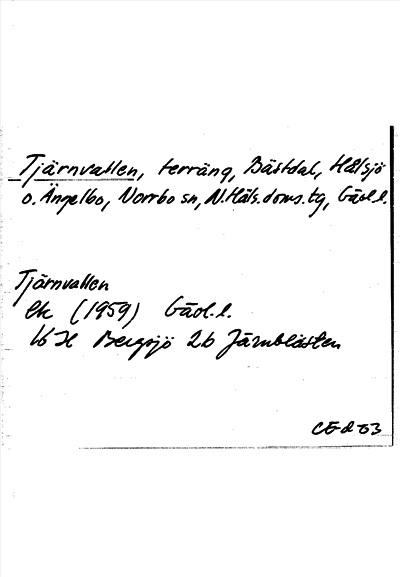 Tjärnvallen, terräng, Bästdal, Hålsjö
o. Ängelbo, Norrbo sn, N.Häls.doms.tg, Gävl.l.
Tjärnvallen
ek (1959) Gävl.l.
16 H Bergsjö 2b Järnblästen